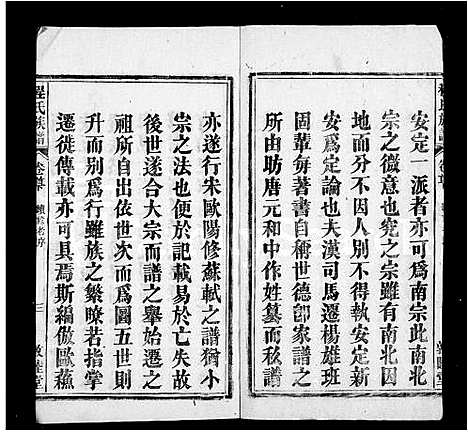 安定一派者亦可爲南宗此南北
宗之微意也究之宗雖有南北因
地而分不因人別不得執安定新
安爲定論也夫漢司馬遷楊雄班
固輩俱著自稱世德卽家譜之
所由助唐元和中作姓纂而秘譜
亦遂行宋歐陽修蘇軾之譜猶小
宗之法也便於記載易於亡失故
後世遂合大宗而譜之舉始遷之
祖所自出依世次而爲圖五世則
升而別爲行雖族之繁瞭若指掌
遷徙傳載亦可具焉斯編倣歐蘇
程氏族譜
三
敦睦堂